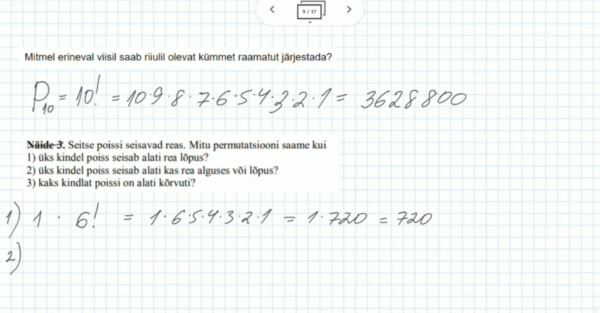 9 / 17
Mitmel erineval viisil saab riiulil olevat kümmet raamatut järjestada?
P₁₀ = 10! = 10·9·8·7·6·5·4·3·2·1 = 3628800
Näide 3. Seitse poissi seisavad reas. Mitu permutatsiooni saame kui
1) üks kindel poiss seisab alati rea lõpus?
2) üks kindel poiss seisab alati kas rea alguses või lõpus?
3) kaks kindlat poissi on alati kõrvuti?
1) 1 · 6! = 1·6·5·4·3·2·1 = 1·720 = 720
2)